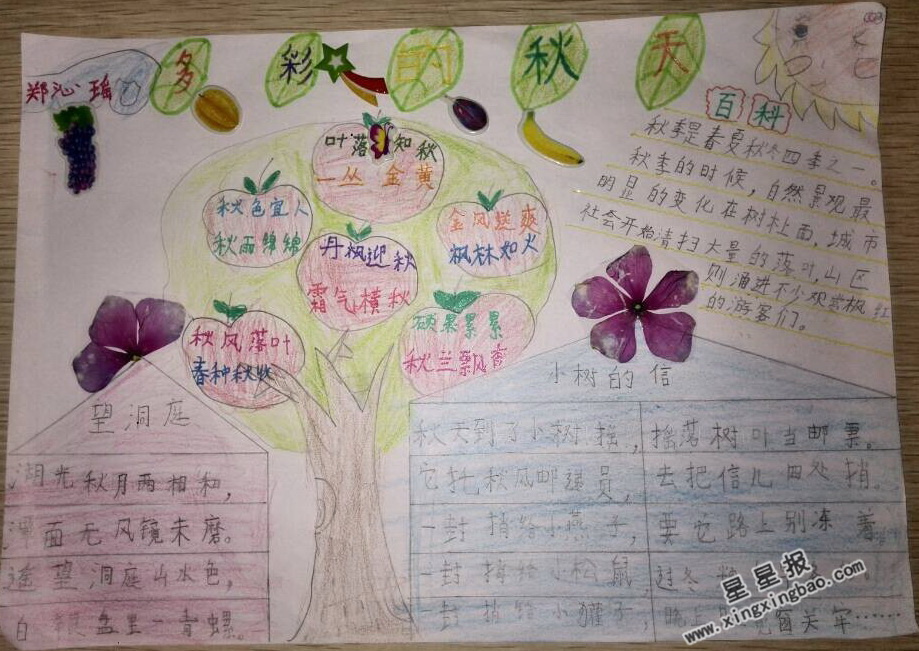 郑沁瑶
多彩的秋天
叶落知秋
一丛金黄
秋色宜人
秋雨绵绵
金风送爽
枫林如火
丹枫迎秋
霜气横秋
秋风落叶
春种秋收
硕果累累
秋兰飘香
百科
秋季是春夏秋冬四季之一。
秋季的时候，自然景观最
明显的变化在树上面，城市
社会开始清扫大量的落叶，山区
则涌进不少观赏枫红
的游客们。
望洞庭
湖光秋月两相和，
潭面无风镜未磨。
遥望洞庭山水色，
白银盘里一青螺。
小树的信
秋天到了小树摇，摇落树叶当邮票。
它托秋风邮递员，去把信儿四处捎。
一封捎给小燕子，要它路上别冻着
一封捎给小松鼠，过冬
一封捎给小獾子，晚上 窗关牢……
星星报
www.xingxingbao.com